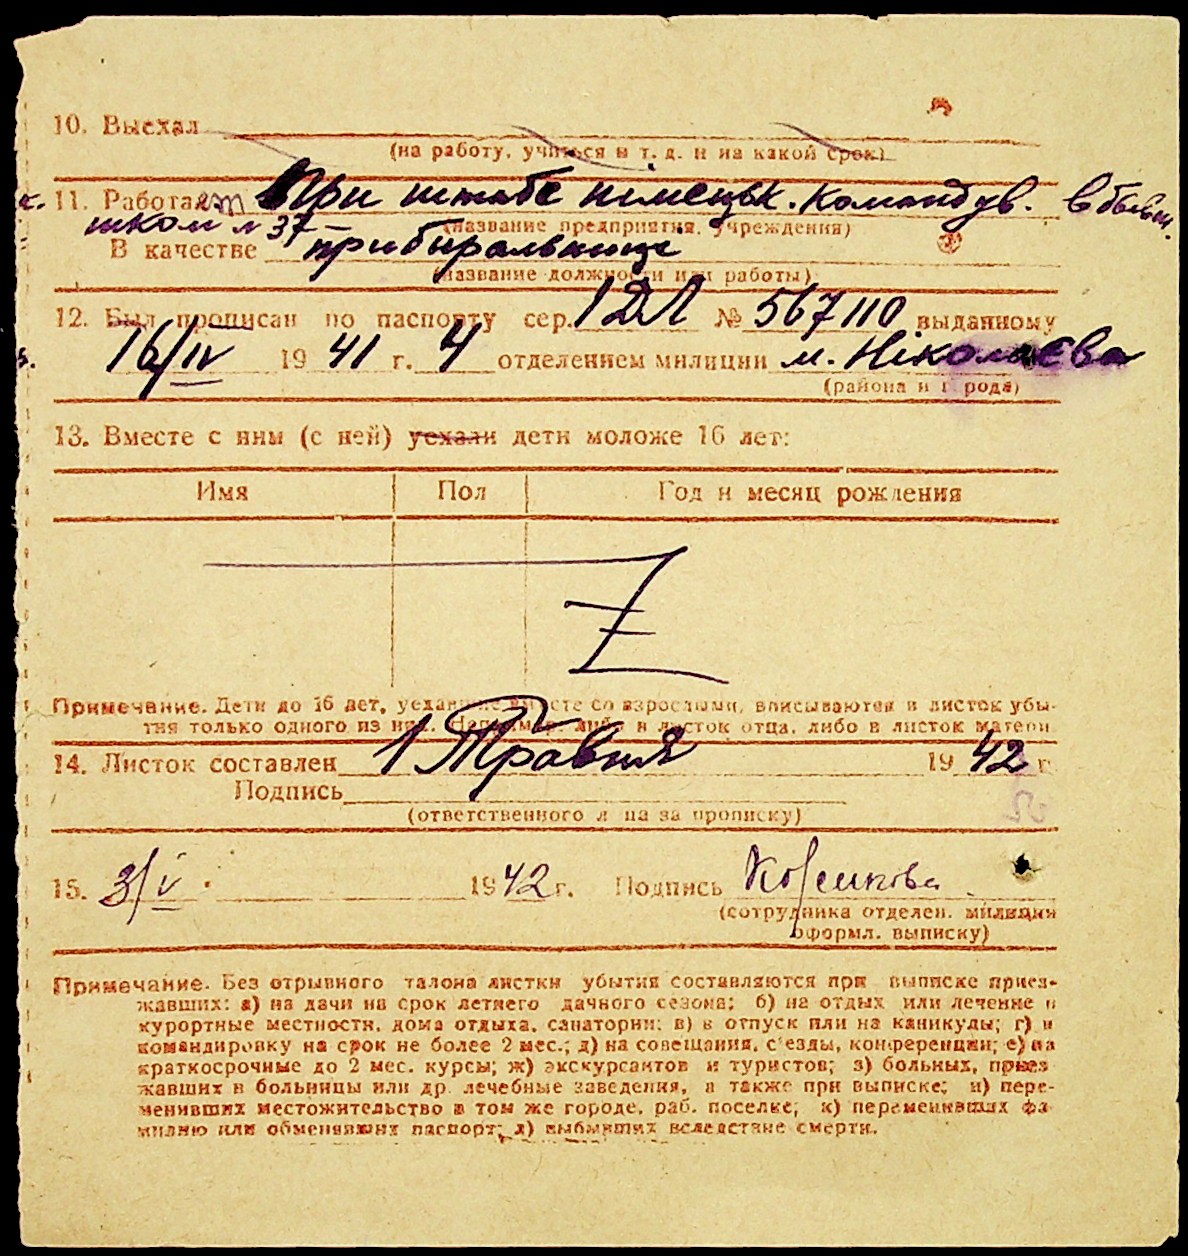 10. Выехал
(на работу, учиться и т. д. и на какой срок)
11. Работает При штабе німецьк. командув. в бывш.
школ № 37
(название предприятия, учреждения)
В качестве прибиральниця
(название должности или работы)
12. Был прописан по паспорту сер. ІДЛ № 567110 выданному
16/IV 1941 г. 4 отделением милиции м. Ніколаєва
(района и города)
13. Вместе с ним (с ней) уехали дети моложе 16 лет:
Имя Пол Год и месяц рождения
Z
Примечание. Дети до 16 лет, уехавшие вместе со взрослыми, вписываются в листок убы-
тия только одного из них. Например, либо в листок отца, либо в листок матери
14. Листок составлен 1 Травня 1942 г
Подпись
(ответственного лица за прописку)
15. 3/V 1942 г. Подпись
(сотрудника отделен. милиции
оформл. выписку)
Примечание. Без отрывного талона листки убытия составляются при выписке приез-
жавших: а) на дачи на срок летнего дачного сезона; б) на отдых или лечение в
курортные местности, дома отдыха, санатории; в) в отпуск или на каникулы; г) в
командировку на срок не более 2 мес.; д) на совещания, с'езды, конференции; е) на
краткосрочные до 2 мес. курсы; ж) экскурсантов и туристов; з) больных, приез
жавших в больницы или др. лечебные заведения, а также при выписке; и) пере-
менивших местожительство в том же городе, раб. поселке; к) переменивших фа-
милию или обменявших паспорт; л) выбывших вследствие смерти.